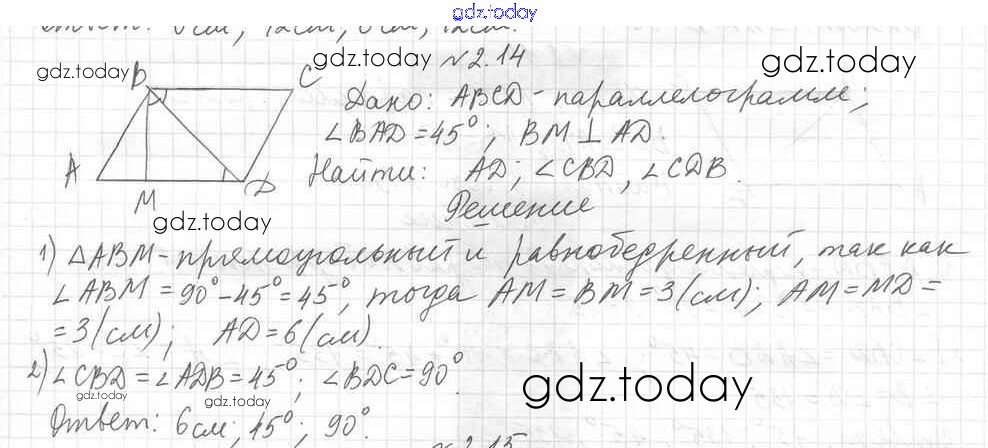 gdz.today
Ответ: 6 см, 12 см, 6 см, 12 см.
gdz.today gdz.today gdz.today
№2.14
B C
Дано: ABCD - параллелограмм;
∠BAD = 45°; BM ⊥ AD.
A M D
Найти: AD; ∠CBD, ∠CDB.
gdz.today
Решение
1) △ABM - прямоугольный и равнобедренный, так как
∠ABM = 90° - 45° = 45°, тогда AM = BM = 3 (см); AM = MD =
= 3 (см); AD = 6 (см).
2) ∠CBD = ∠ADB = 45°; ∠BDC = 90°.
gdz.today gdz.today gdz.today
Ответ: 6 см, 45°, 90°.
№2.15